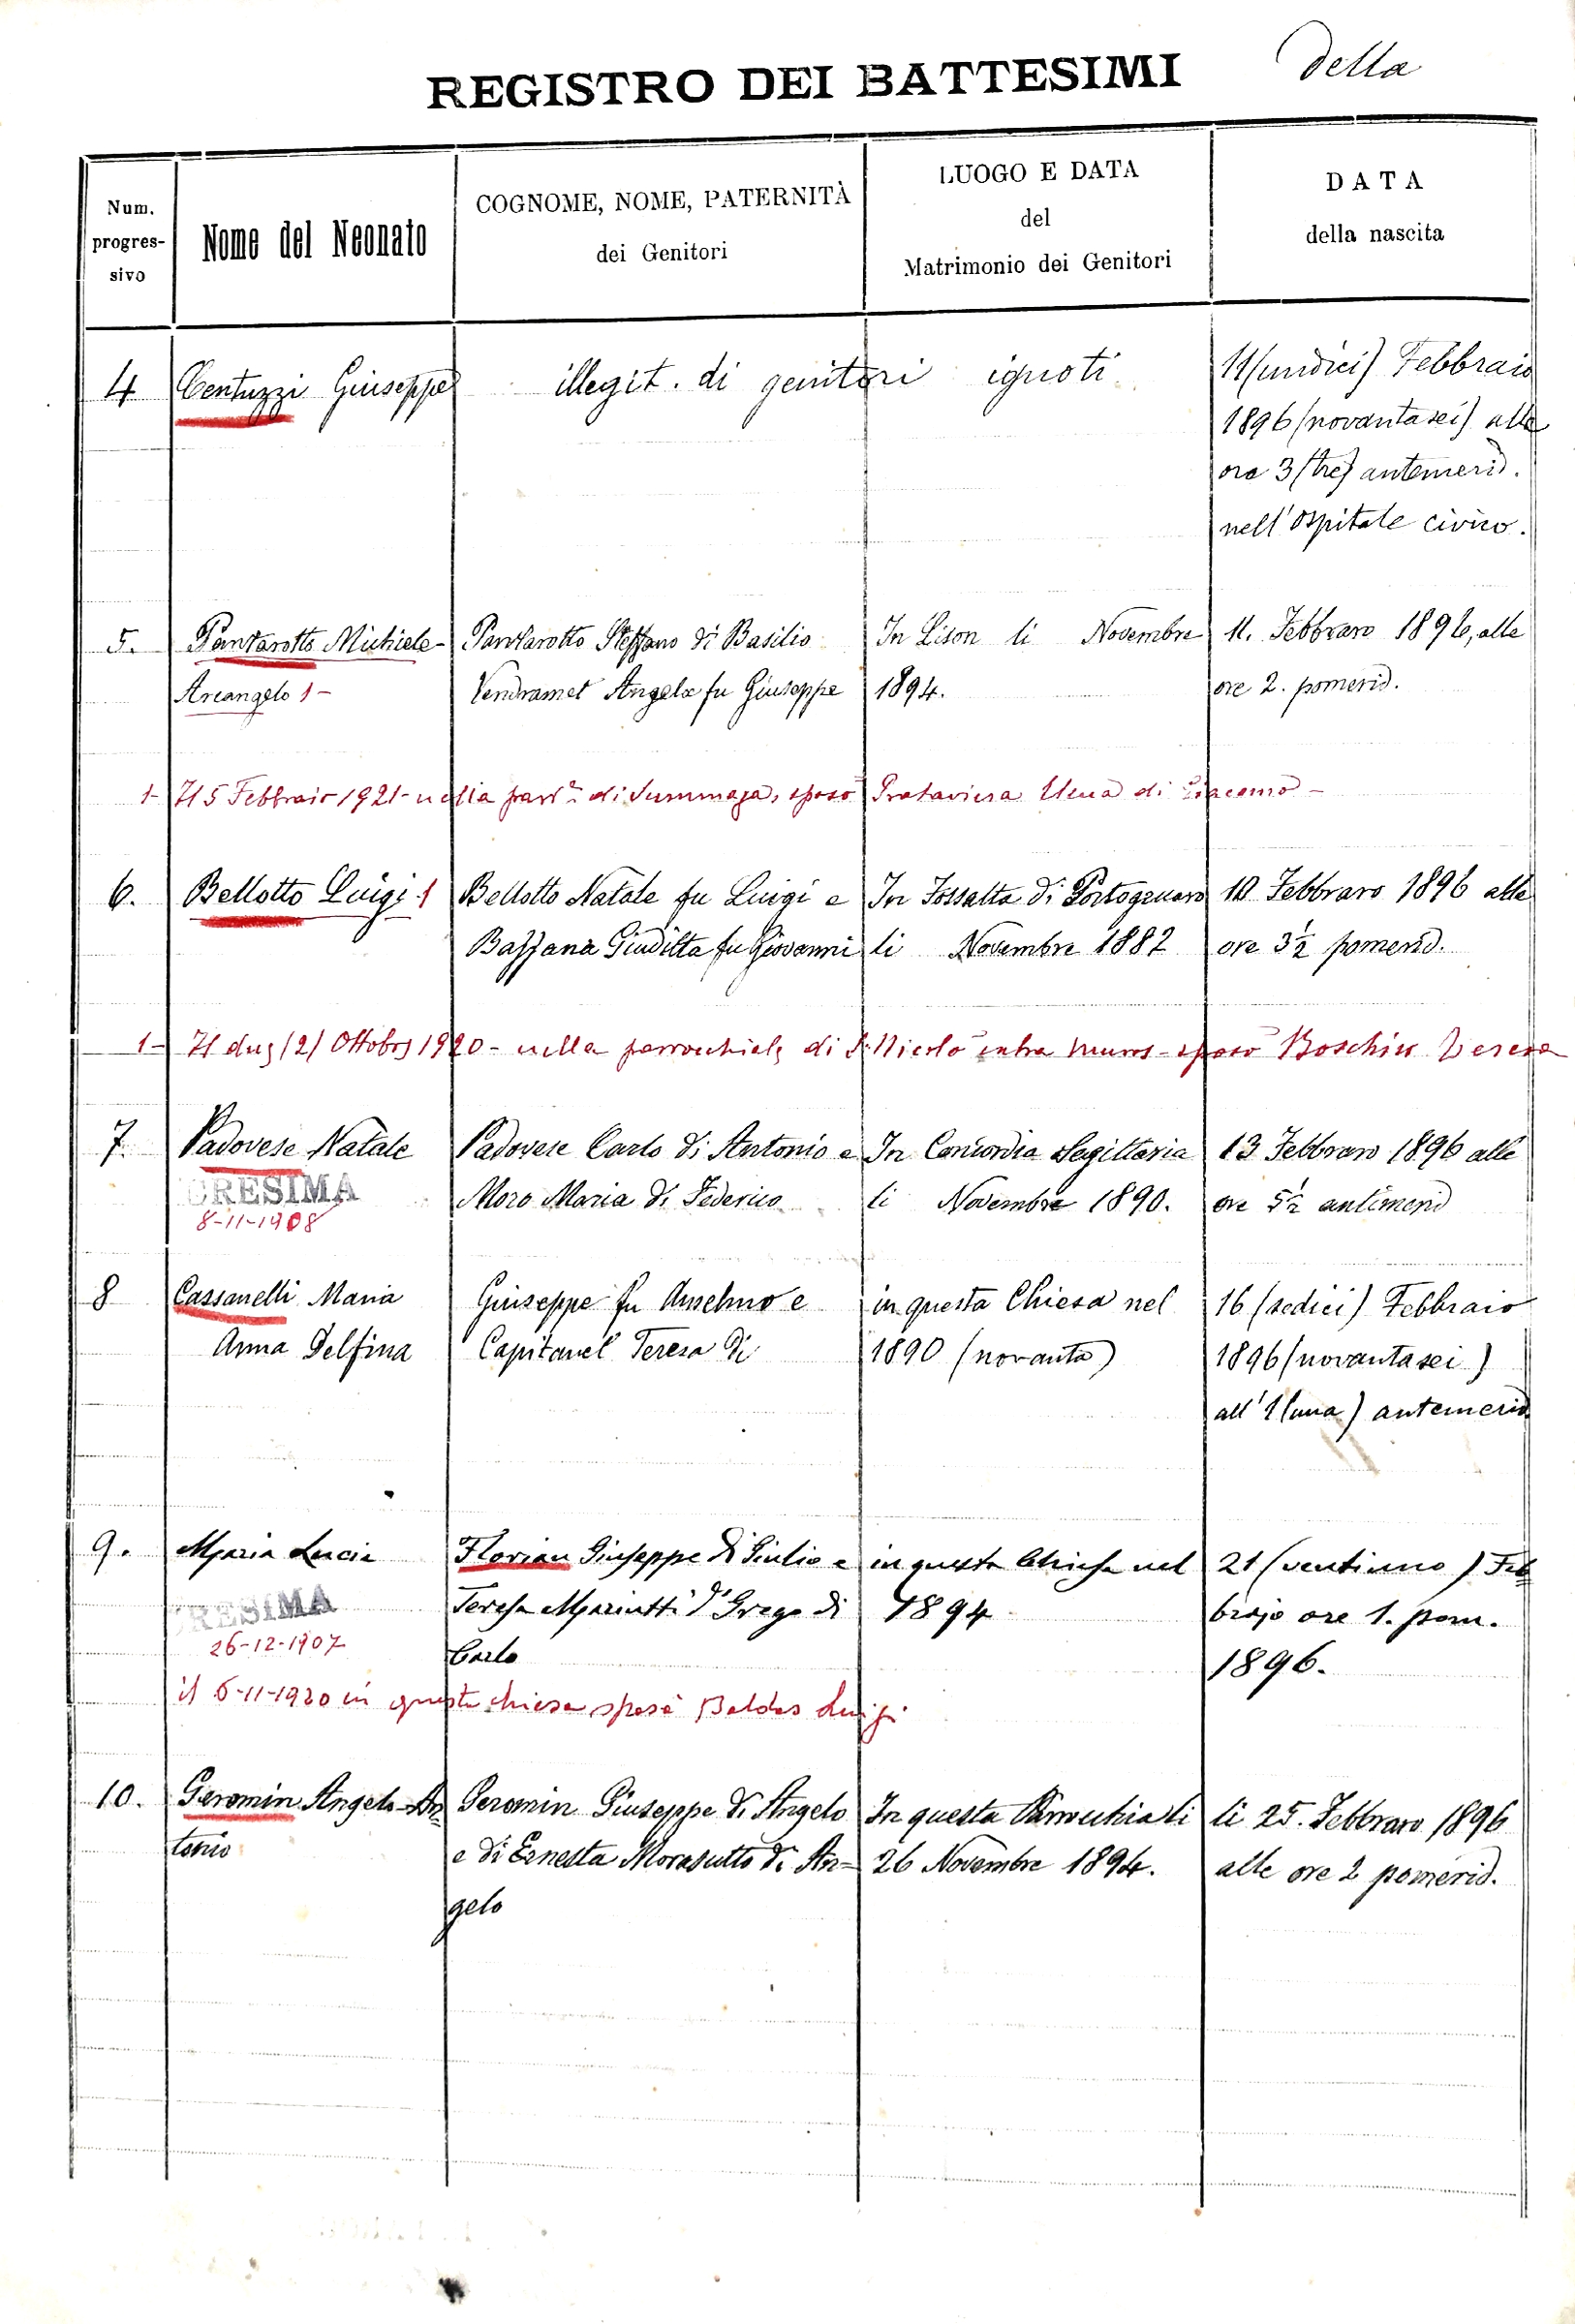 REGISTRO DEI BATTESIMI della
Num. progres- sivo
Nome del Neonato
COGNOME, NOME, PATERNITÀ
dei Genitori
LUOGO E DATA
del
Matrimonio dei Genitori
DATA
della nascita
4 Centuzzi Giuseppe illegit. di genitori ignoti 11 (undici) Febbraio
1896 (novantasei) alle
ore 3 (tre) antemerid.
nell'Ospitale civico.
5. Pantarotto Michiele- Pantarotto Steffano di Basilio In Lison li Novembre 11. Febbraro 1896, alle
Arcangelo 1- Vendramet Angela fu Giuseppe 1894. ore 2. pomerid.
1- Il 5 Febbraio 1921 - nella parr. di Summaga, sposò Prataviera Elena di Giacomo -
6. Bellotto Luigi 1 Bellotto Natale fu Luigi e In Fossalta di Portogruaro 10 Febbraro 1896 alle
Bazzana Giuditta fu Giovanni li Novembre 1882 ore 3½ pomerid.
1- Il due (2) Ottobre 1920 - nella parrocchiale di S. Nicolò extra muros - sposò Boschin Teresa
7. Padovese Natale Padovese Carlo di Antonio e In Concordia Sagittaria 13 Febbraro 1896 alle
CRESIMA Moro Maria di Federico li Novembre 1890. ore 5½ antimerid
8-11-1908
8 Cassanelli Maria Giuseppe fu Anselmo e in questa Chiesa nel 16 (sedici) Febbraio
Anna Delfina Capitanel Teresa di 1890 (novanta) 1896 (novantasei)
all'1 (una) antemerid
9. Maria Lucia Florian Giuseppe di Giulio e in questa Chiesa nel 21 (ventiuno) Feb
CRESIMA Teresa Mariutti d' Grego di 1894 brajo ore 1. pom.
26-12-1907 Carlo 1896.
il 6-11-1920 in questa chiesa sposò Baldas Luigi
10. Geromin Angelo-An Geromin Giuseppe di Angelo In questa Parrocchia li li 25. Febbraro 1896
tonio e di Ernesta Morasutto di An= 26 Novembre 1894. alle ore 2 pomerid.
gelo